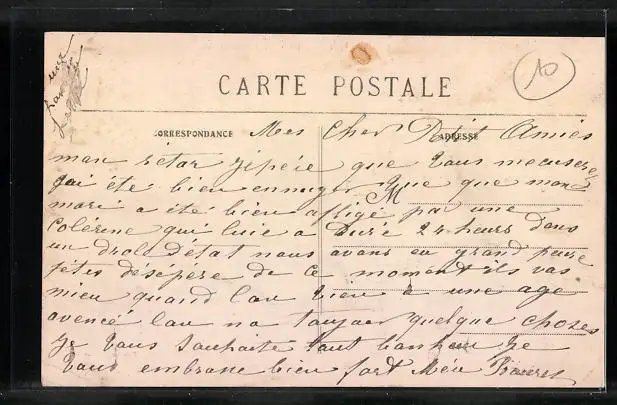 10
CARTE POSTALE
CORRESPONDANCE
ADRESSE
Mes Cher Petit Amies
mon retar gépére que vous mecuserez
jai été bien ennuyer que que mon
M
mari a été bien affligé par une
colerine qui luie a duré 24 heurs dans
un drole d'état nous avons eu grand peure
jétes desépere de ce moment ils vas
mieu quand lon vien a une age
avencé lon na toujour quelque choses
Je vous souhaite tout bonheur Je
vous embrane bien fort